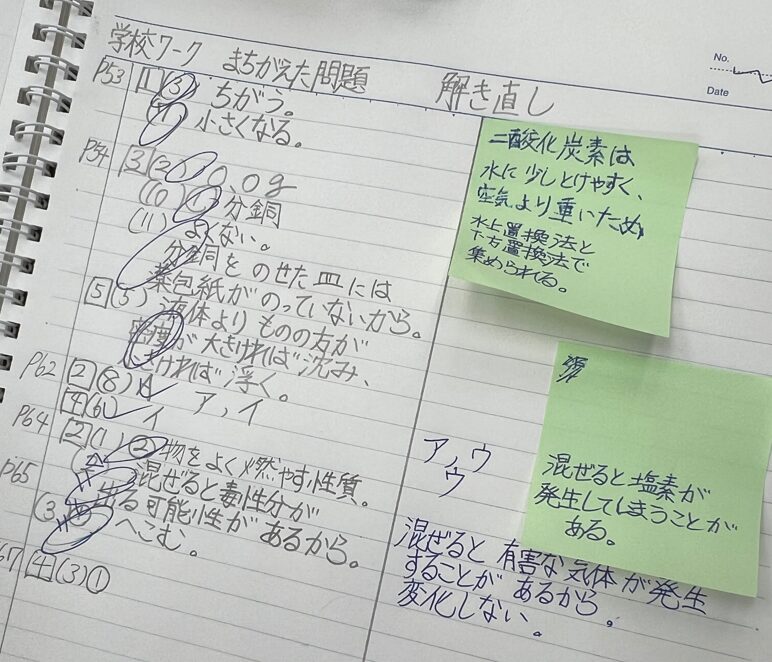 No.
Date
学校ワーク まちがえた問題 解き直し
P53 1 ③ ちがう。
小さくなる。
P54 3 (2) 0.0g
(10) ① 分銅
(11) よくない。
分銅をのせた皿には
薬包紙がのっていないから。
5 (5) 液体よりものの方が
密度が大きければ沈み、
小さければ浮く。
P62 2 (8) ア, イ
4 (6) イ
P64 2 (1) ② 物をよく燃やす性質。
混ぜると毒性分が
P65 出る可能性があるから。
(3) へこむ。
67 4 (3) ①
ア, ウ
ウ
混ぜると有害な気体が発生
することがあるから。
変化しない。
二酸化炭素は
水に少しとけやすく、
空気より重いため
水上置換法と
下方置換法で
集められる。
混ぜると塩素が
発生してしまうことが
ある。